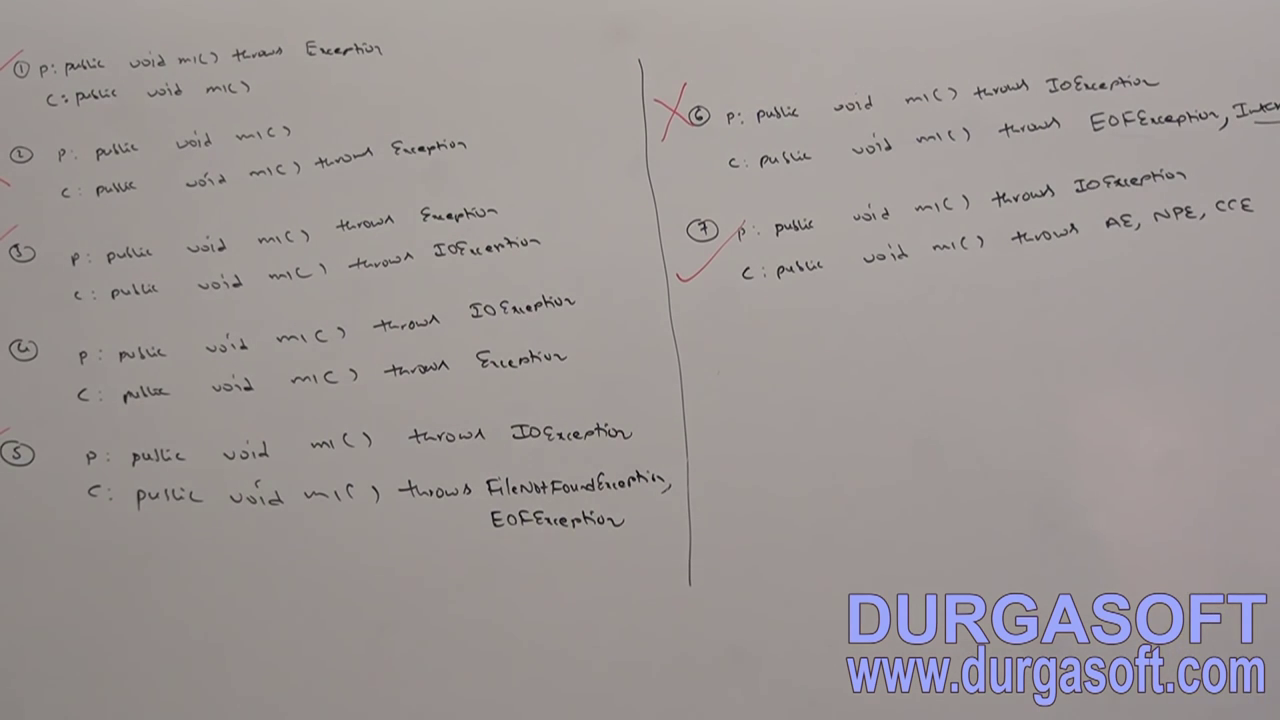 ① P: public void m1() throws Exception
C: public void m1()
② P: public void m1()
C: public void m1() throws Exception
③ P: public void m1() throws Exception
C: public void m1() throws IOException
④ P: public void m1() throws IOException
C: public void m1() throws Exception
⑤ P: public void m1() throws IOException
C: public void m1() throws FileNotFoundException,
EOFException
⑥ P: public void m1() throws IOException
C: public void m1() throws EOFException,
⑦ P: public void m1() throws IOException
C: public void m1() throws AE, NPE, CCE
DURGASOFT
www.durgasoft.com